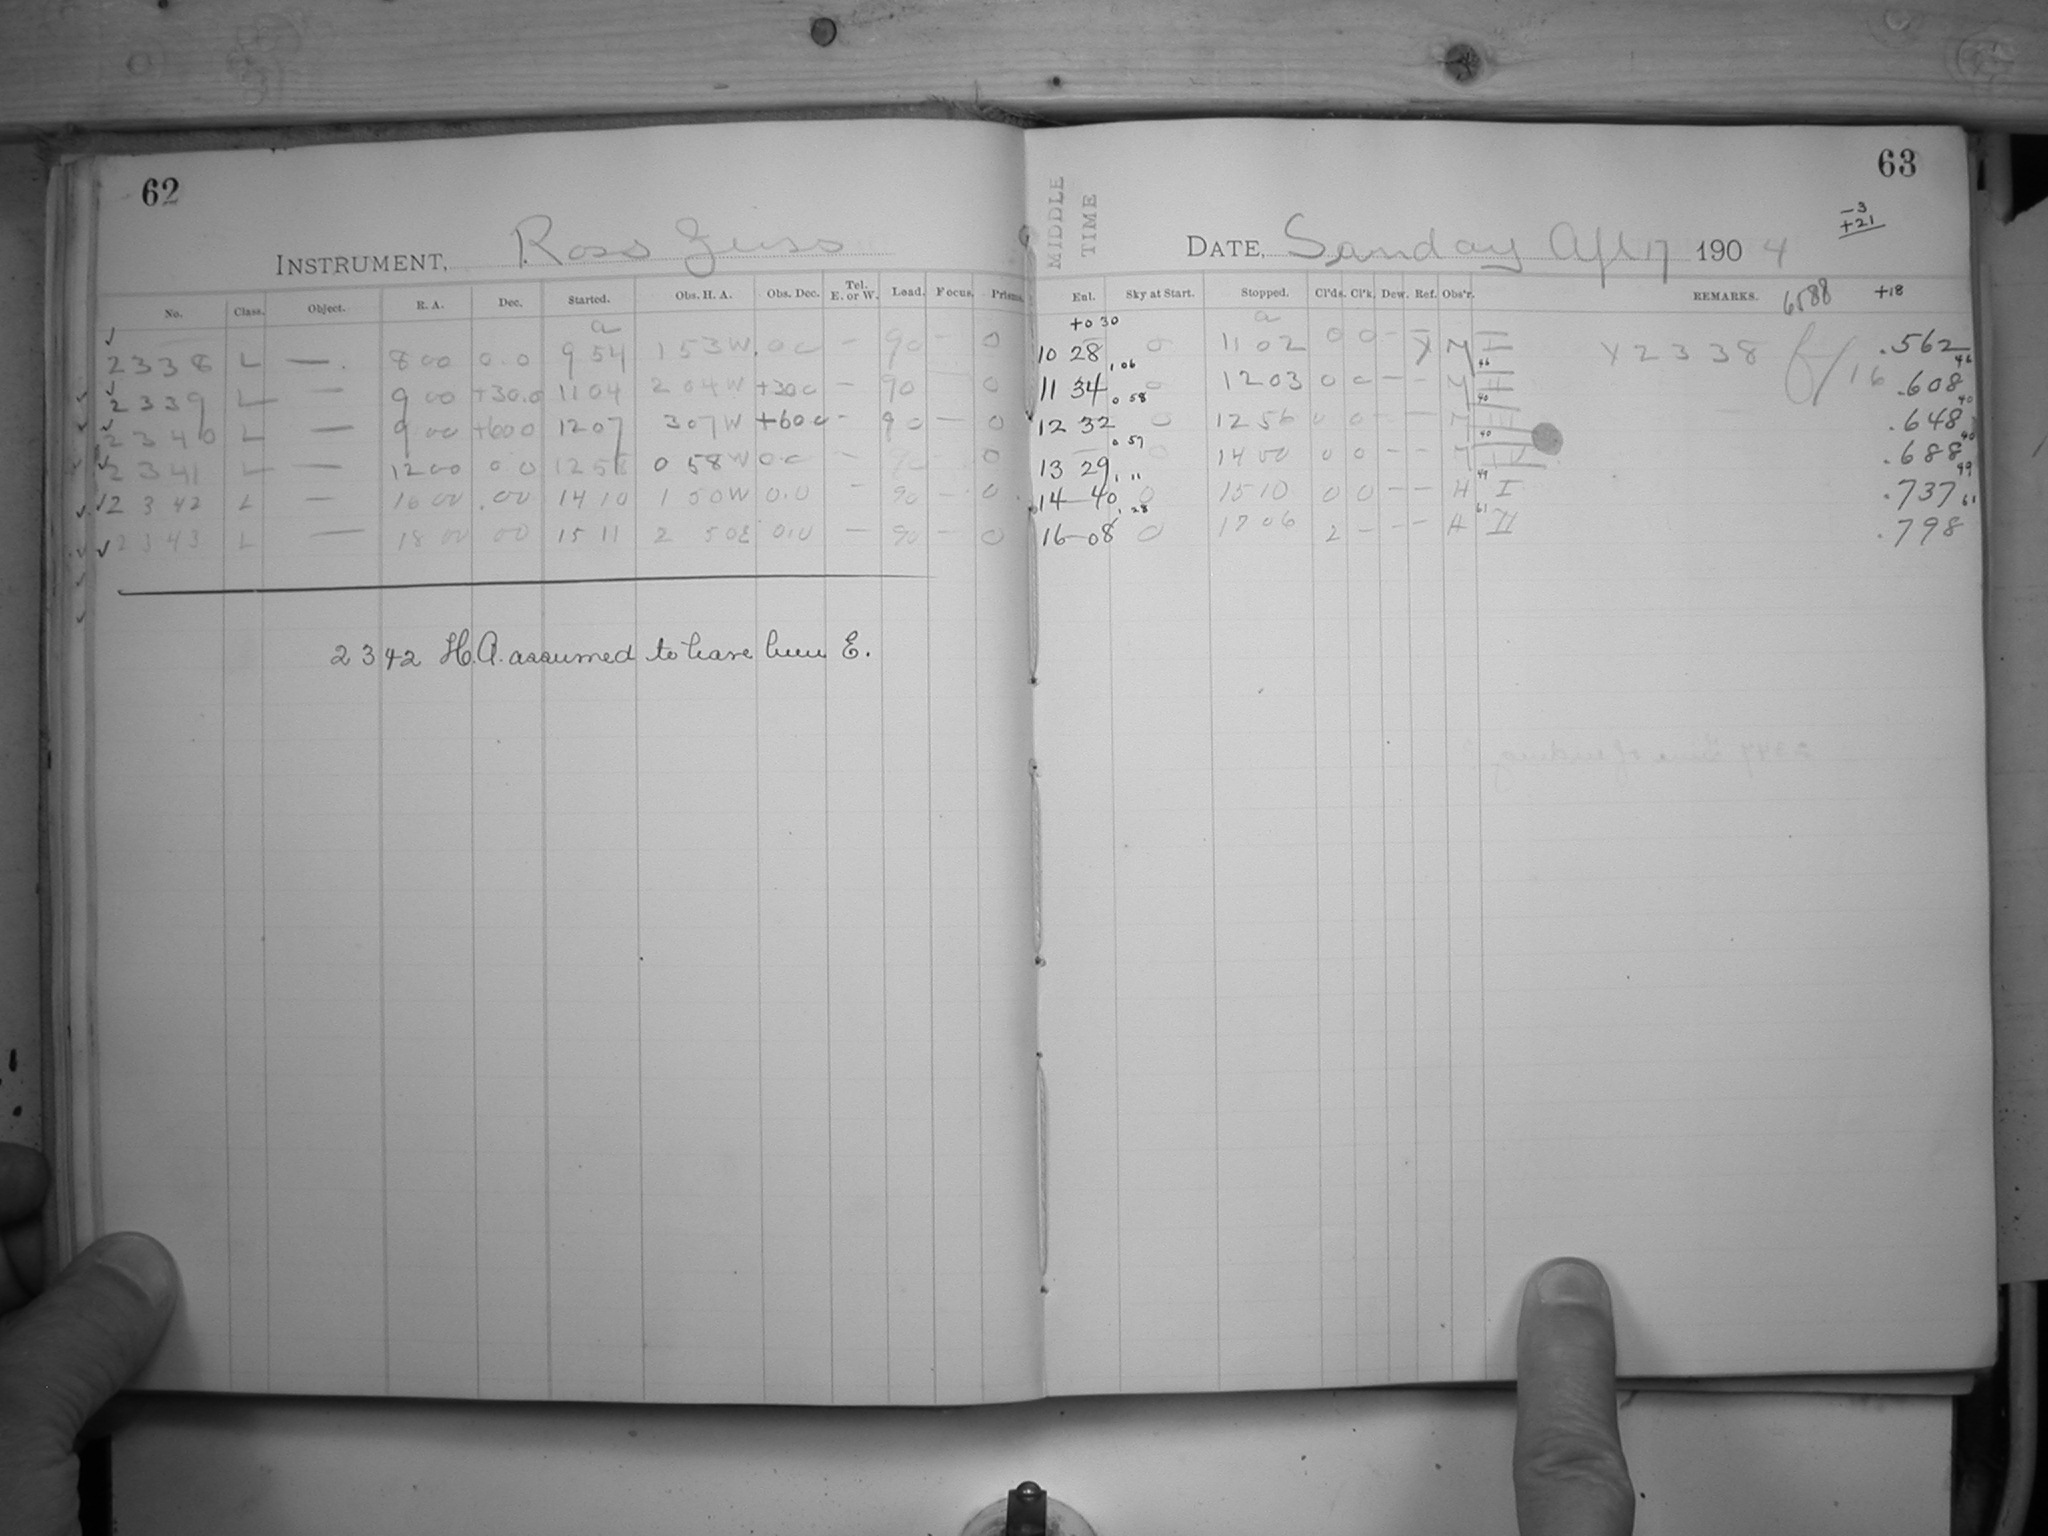 62
INSTRUMENT, Ross Zeiss
No. Class. Object. R. A. Dec. Started. Obs. H. A. Obs. Dec. Tel. E. or W. Load. Focus. Prisms.
a
2338 L — 8 00 0.0 9 54 1 53 W 0 0 – 90 – 0
2339 L — 9 00 +30.0 11 04 2 04 W +30 0 – 90 0
2340 L — 9 00 +60 0 12 07 3 07 W +60 0 – 90 – 0
2341 L — 12 00 0 0 12 58 0 58 W 0 0 0
2342 L — 16 00 .00 14 10 1 50 W 0.0 – 90 – 0
2343 L — 18 00 00 15 11 2 50 E 0.0 — 90 – 0
2342 H.A. assumed to have been E.
63
MIDDLE TIME
DATE, Sunday Apl 17 1904
–3
+21
+18
Enl. Sky at Start. Stopped. Cl'ds. Cl'k. Dew. Ref. Obs'r. REMARKS. 6588
+0 30 a
10 28 0 11 02 0 0 – M I X 2338 f/16 .562
1 06 46 46
11 34 0 12 03 0 0 – – M II .608
0 58 40 40
12 32 0 12 56 0 0 – — M III .648
0 57 40 40
13 29 0 14 00 0 0 – – M IV .688
1 11 49 49
14–40 0 15 10 0 0 – – H I .737
1 28 61 61
16–08 0 17 06 2 – – – H II .798